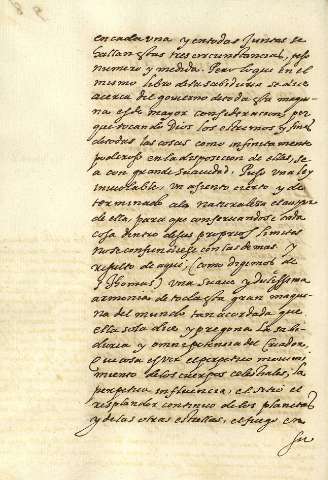 en cada una y en todas juntas se
hallan estas tres circunstancias, peso
numero, y medida. Pero lo que en el
mismo libro de la sabiduria se dice
acerca del govierno de toda esta maqui
na es de mayor consideracion; por
que tocando Dios los estremos y fines
de todas las cosas como infinitamente
poderoso en la disposicion de ellas, se a
con grande suavidad. Puso una ley
inviolable, un asiento cierto y de
terminado a la naturaleza
de ella, para que conservandose cada
cosa dentro de sus proprios limites
no se confundiese con las demas y
resulto de aqui, (como dijo
Thomas) una suave y dulcissima
armonia de toda esta gran maqui
na del mundo tan acordada que
ella sola dice y pregona la sabi
duria y omnipotencia del Criador.
O ver el perpetuo movi
miento de los cuerpos celestiales, la
perpetua influencia, el
resplandor continuo de los planetas
y de las otras estrellas, el fuego en
su